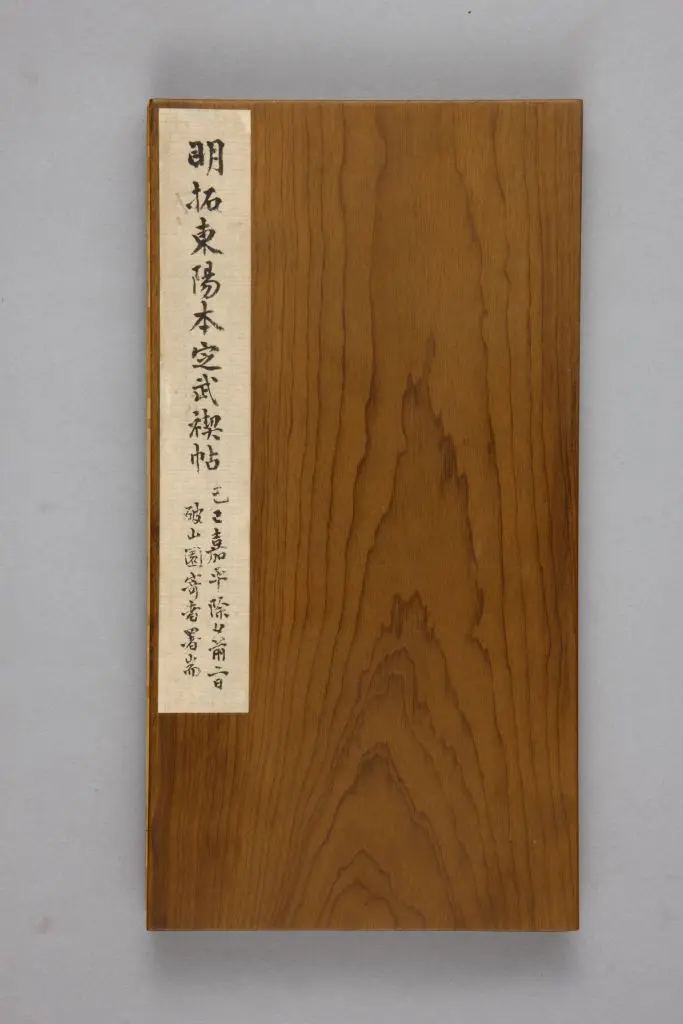 明拓東陽本定武禊帖
乙巳嘉平除夕前二日
破山園寄者署耑